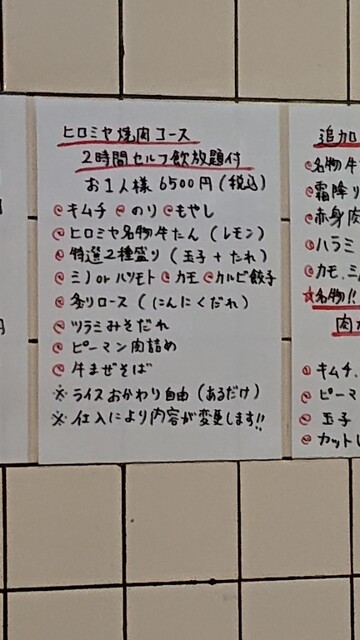 ヒロミヤ焼肉コース
2時間セルフ飲放題付
お1人様 6500円(税込)
キムチ のり もやし
ヒロミヤ名物牛たん(レモン)
特選2種盛り(玉子+たれ)
ミノorハツモト カモ カルビ餃子
炙りロース(にんにくだれ)
ツラミみそだれ
ピーマン肉詰め
牛まぜそば
※ライスおかわり自由(あるだけ)
※仕入により内容が変更します!!
追加
名物牛
霜降り
赤身肉
ハラミ
カモ、ミ
☆名物!!
肉
キムチ、
ピーマ
玉子
カット
円